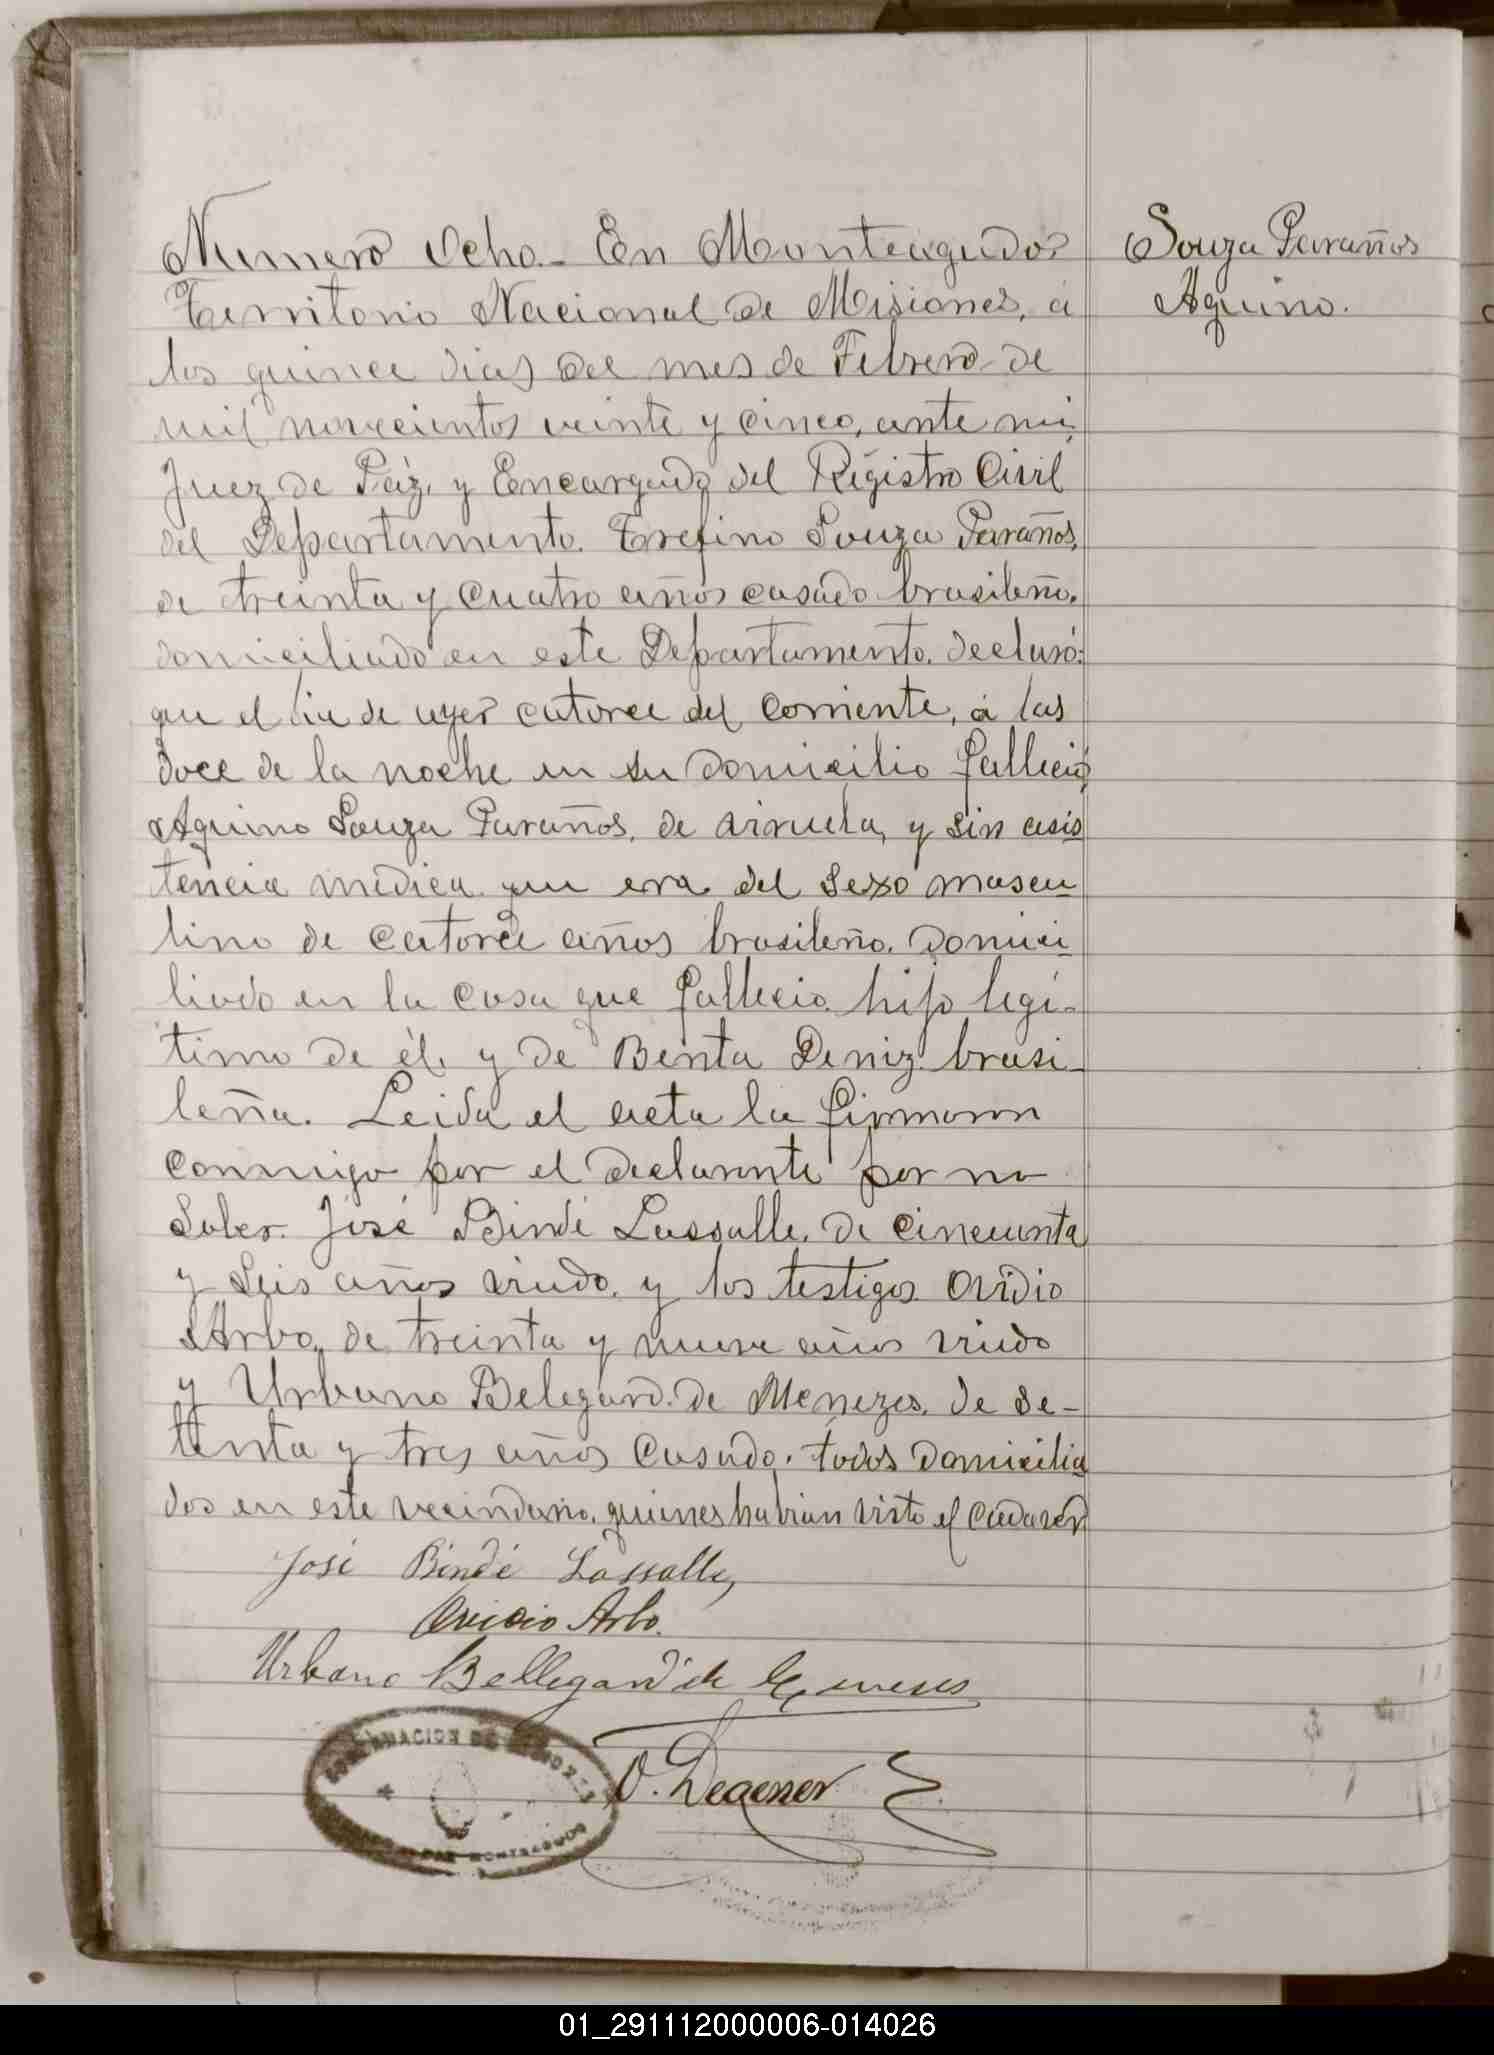 Numero Ocho.- En Monteagudo,
Territorio Nacional de Misiones, á
los quince dias del mes de Febrero de
mil novecientos veinte y cinco, ante mi,
Juez de Páz, y Encargado del Régistro Civil
del Departamento. Trefino Souza Paraños,
de treinta y cuatro años casado brasileño,
domiciliado en este Departamento. declaró:
que el dia de ayer catorce del corriente, á las
doce de la noche en su domicilio falleció,
Aquino Souza Paraños, de viruela, y sin asis
tencia médica que era del sexo mascu
lino de catorce años brasileño. domici
liado en la casa que fallecio. hijo legi-
timo de él, y de Benta Deniz brasi-
leña. Leida el acta la firmaron
conmigo por el declarante por no
saber. José Bindé Lassalle, de cincuenta
y seis años viudo, y los testigos Ovidio
Arbo, de treinta y nueve años viudo
y Urbano Belegard de Menezes, de se-
tenta y tres años casado. todos domicilia
dos en este vecindario, quienes habian visto el cadaver
José Bindé Lassalle,
Ovidio Arbo.
Urbano Bellegard de Meneses
O. Degener
GOBERNACION DE MISIONES
PAZ MONTEAGUDO
Souza Paraños
Aquino.
01_291112000006-014026